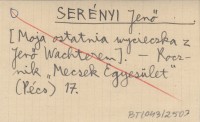 SERÉNYI Jenő
[Moja ostatnia wycieczka z
Jenő Wachterem]. – Rocz-
nik „Mecsek Egyesület"
(Pécs) 17.
BT/043/2507